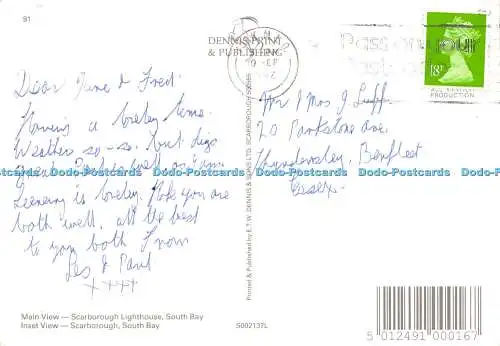 81
DENNIS PRINT
& PUBLISHING
Dear June & Fred.
Having a lovely time.
Weather so-so. but digs
great.
Scenery is lovely. Hope you are
both well. all the best
to you both from
Les & Paul
xxxx
Mr / Mrs J Luff
20 Parkstone Ave.
Thundersley, Benfleet
Essex.
18P
Pass on your
Printed & Published by E.T.W. DENNIS & SONS LTD, SCARBOROUGH
Main View — Scarborough Lighthouse, South Bay
Inset View — Scarborough, South Bay
S002137L
5 012491 000167
Dodo-Postcards Dodo-Postcards Dodo-Postcards Dodo-Postcards Dodo-Postcards